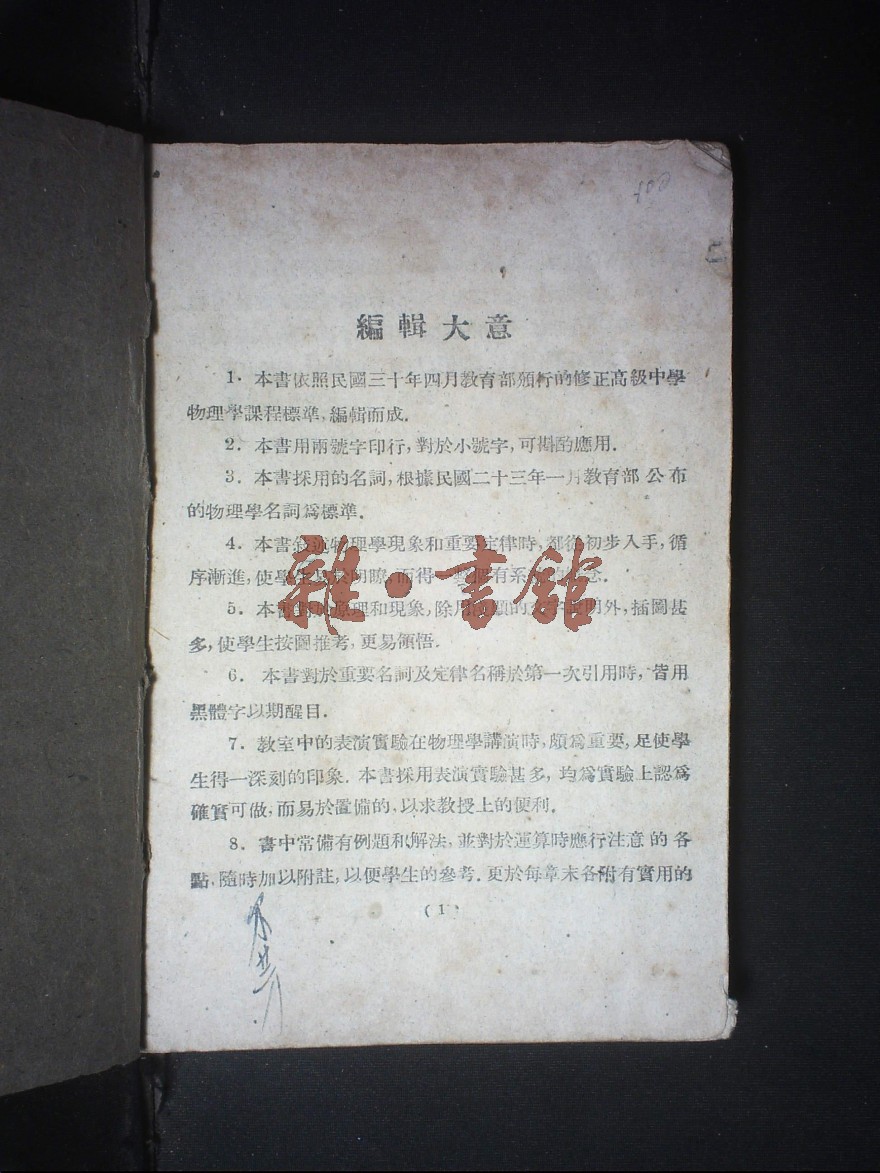 編輯大意
1. 本書依照民國三十年四月教育部頒行的修正高級中學
物理學課程標準, 編輯而成.
2. 本書用兩號字印行, 對於小號字, 可斟酌應用.
3. 本書採用的名詞, 根據民國二十三年一月教育部公布
的物理學名詞爲標準.
4. 本書敍述物理學現象和重要定律時, 都從初步入手, 循
序漸進, 使學生易於明瞭, 而得一 有系
5. 本書對於原理和現象, 除用 的文字 明外, 插圖甚
多, 使學生按圖推考, 更易領悟.
6. 本書對於重要名詞及定律名稱於第一次引用時, 皆用
黑體字以期醒目.
7. 教室中的表演實驗在物理學講演時, 頗爲重要, 足使學
生得一深刻的印象. 本書採用表演實驗甚多, 均爲實驗上認爲
確實可做, 而易於置備的, 以求教授上的便利.
8. 書中常備有例題和解法, 並對於運算時應行注意的各
點, 隨時加以附註, 以便學生的參考. 更於每章末各附有實用的
(1)
雜·書館